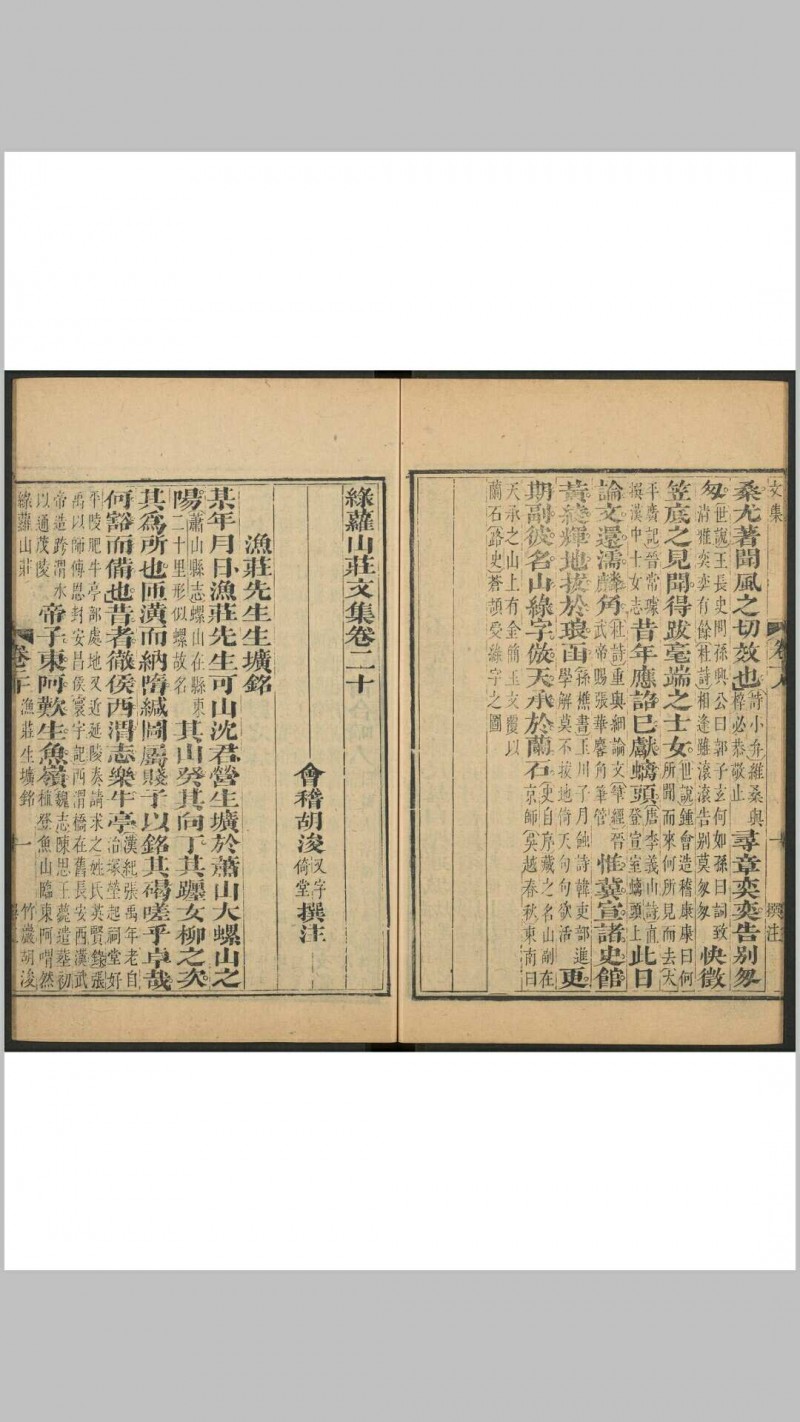 文集
卷十八
十
撰注
桑尤著聞風之切效也詩小弁維桑與梓必恭敬止尋章奕奕告別匆
匆世說王長史問孫興公曰郭子玄何如孫曰詞致清雅奕奕有餘杜詩相逢雖滾滾告別莫匆匆快徵
笠底之見聞得跋毫端之士女世說鍾會造稽康康曰何所聞而來何所見而去大
平廣記晉常璩撰漢中士女志昔年應詔巳獻螭頭唐李義山詩直登宣室螭頭上此日
論文還濡麟角杜詩重與細論文筆經晉武帝賜張華麐角筆管惟冀宣諸史館
黃繞輝地拔於琅函孫樵書玉川子月蝕詩韓吏部進學解莫不拔地倚天句句欲活更
期副彼名山綠字倣天承於蘭石史自序藏之名山副在京師吳越春秋東南曰
天承之山上有金簡玉文覆以
蘭石路史蒼頡受綠字之圖
綠蘿山莊文集卷二十
會稽胡浚又字倚堂撰注
漁莊先生生壙銘
某年月日漁莊先生可山沈君營生壙於蕭山大螺山之
陽蕭山縣志螺山在縣東二十里形似螺故名其山癸其向丁其躔女柳之次
其為所也匝潢而納隋緘圖屬賤子以銘其碣嗟乎卓哉
何豁而備也昔者薇侯西渭志樂牛亭漢紀張禹年老自治冢塋起祠堂好
平陵肥牛亭部處地又近延陵奏請求之姓氏英賢錄張
禹以師傅恩封安昌侯寰宇記西渭橋在舊長安西漢武
帝造跨渭水以通茂陵帝子東阿歎生魚嶺魏志陳思王薨遺葬初植登魚山臨東阿喟然
綠蘿山莊
卷二十
漁莊生壙銘
一
竹巖胡浚